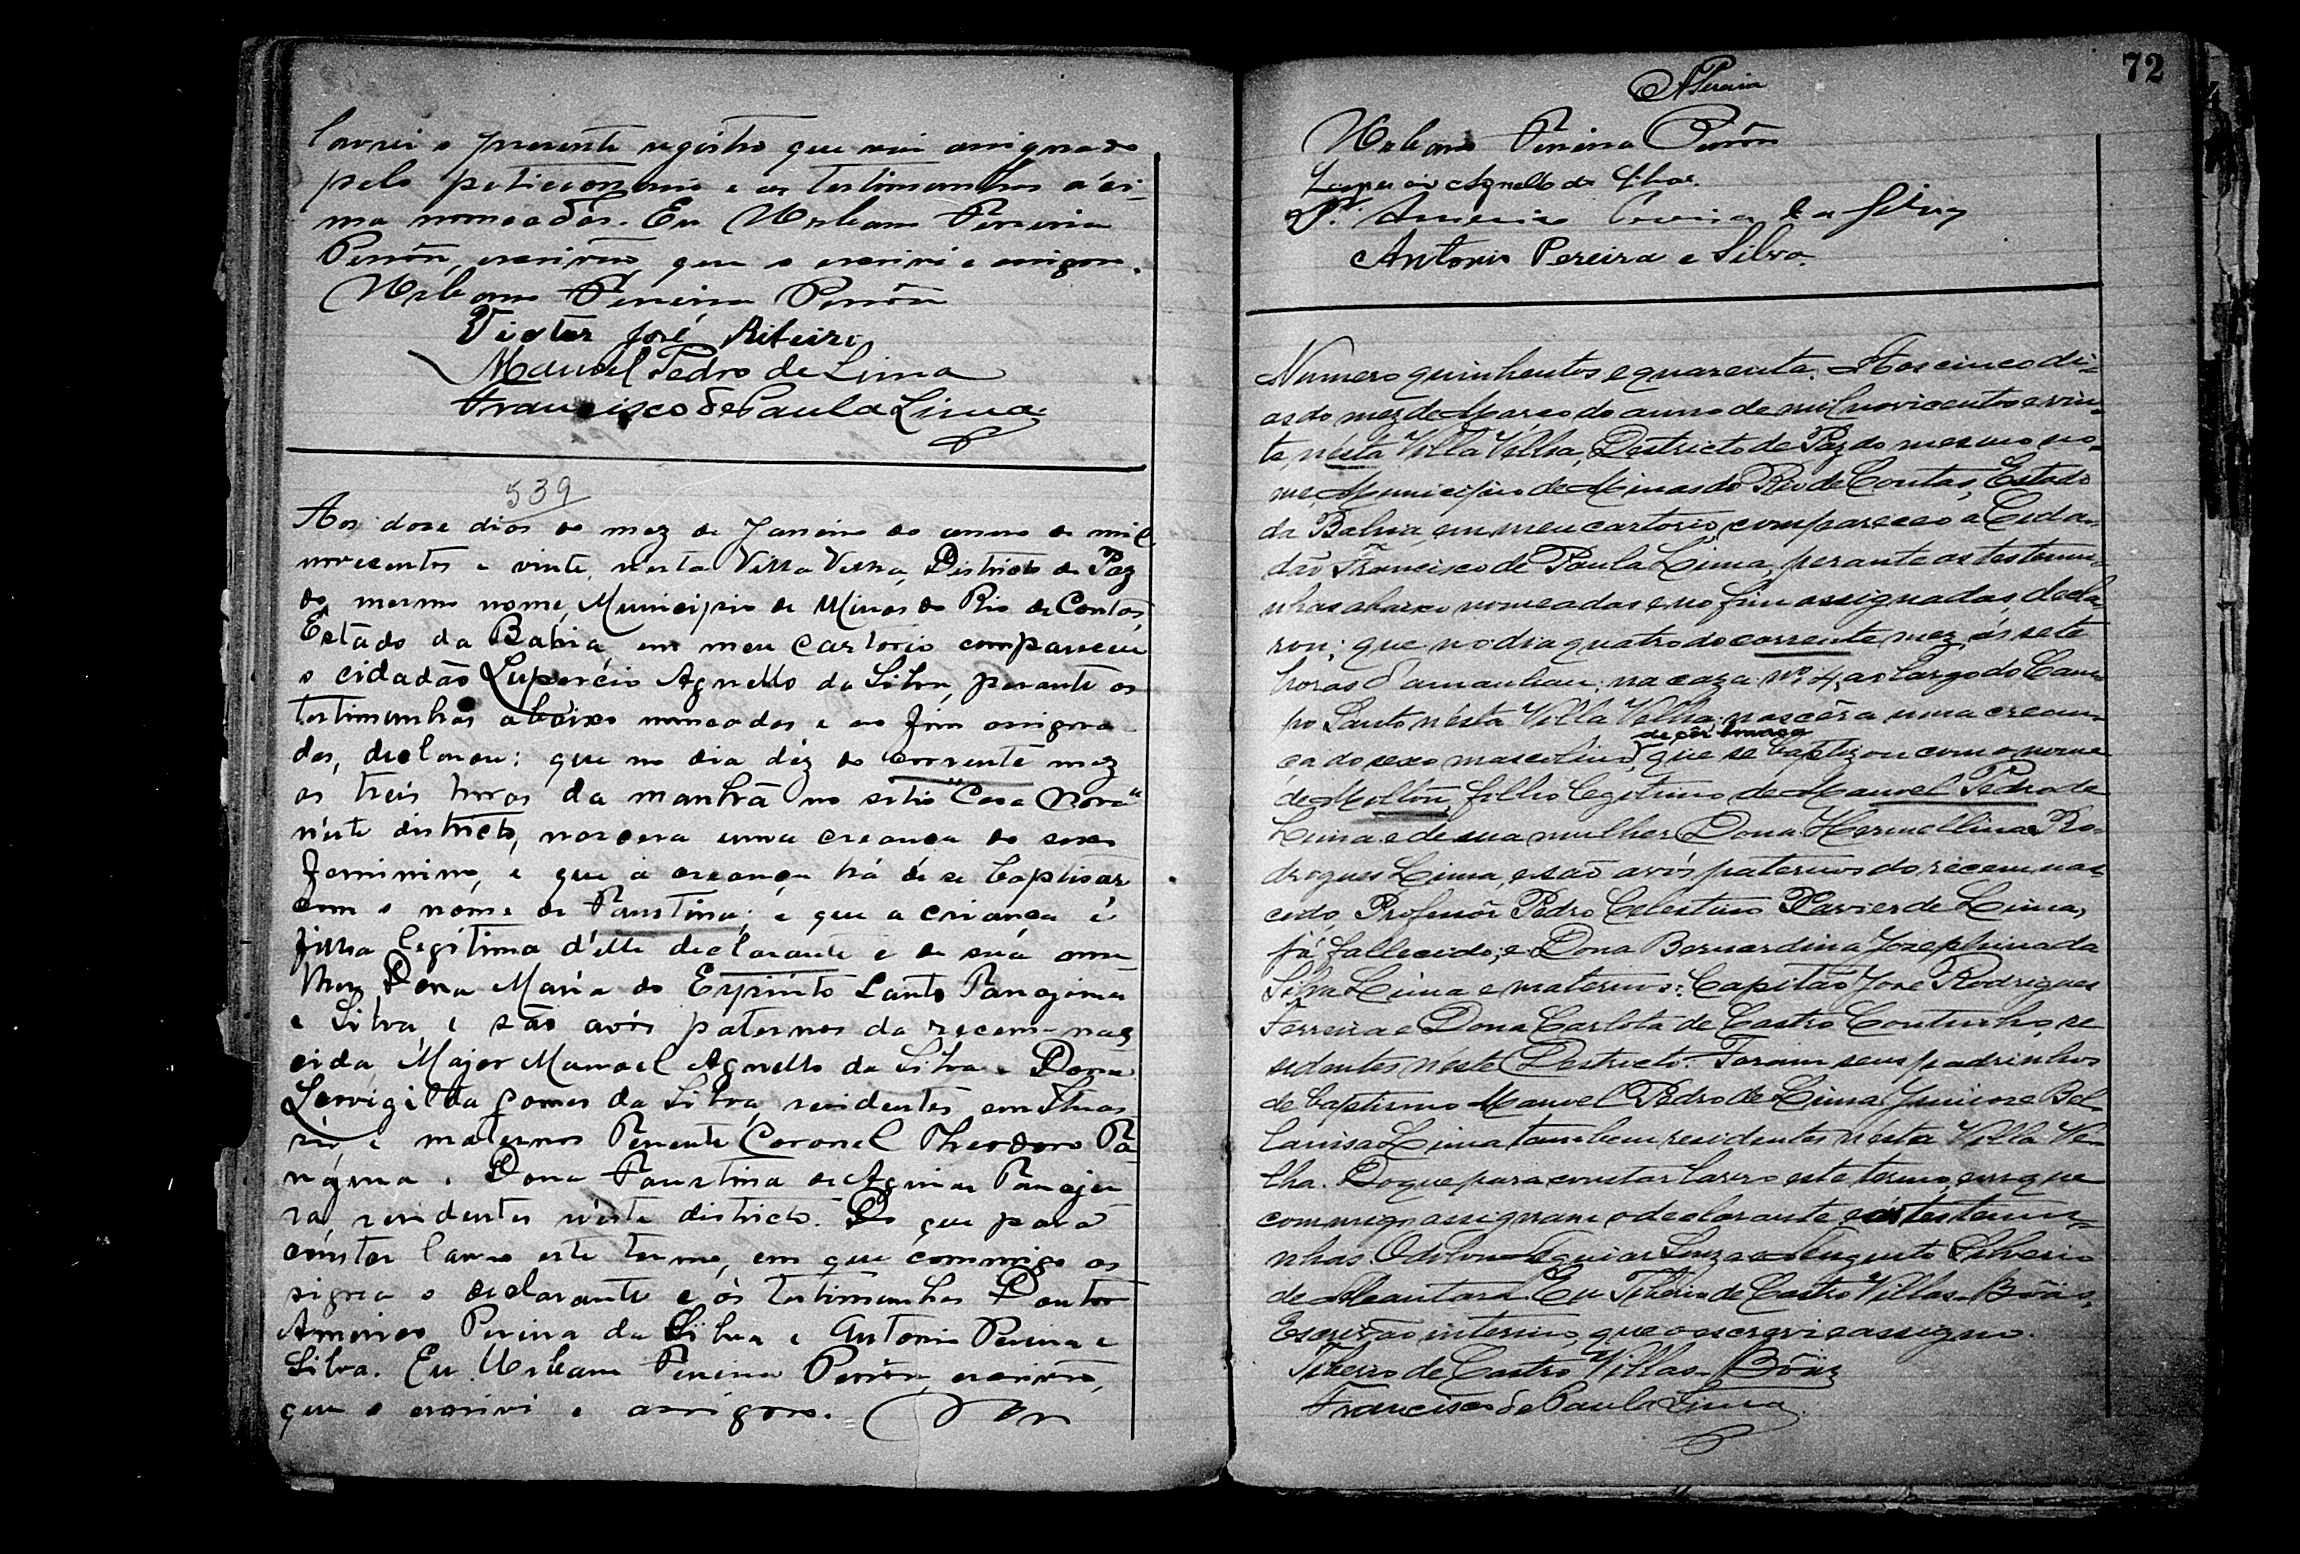 lavrei o presente registro que vai assignado
pelo peticionario e as testimunhas a'ci-
ma nomeadas. Eu Urbano Pereira
Penôn, escrivão que o escrivi e assigno.
Urbano Pereira Penôn
Victor José Ribeiro
Manoel Pedro de Lima
Francisco de Paula Lima
539
Aos dose dias do mez de Janeiro do anno de mil
novecentos e vinte, nesta Villa Velha, Districto de Paz
do mesmo nome, Municipio de Minas do Rio de Contas,
Estado da Bahia, em meu cartorio compareceu
o cidadão Lupercio Agnello da Silva, perante as
testimunhas abaixo nomeadas e ao fim assigna-
das, declarou: que no dia déz do corrente mez
as treis horas da manhã no sitio "Casa Nova"
n'este districto, nascera uma creança do sexo
feminino, e que a creança há de se baptisar
com o nome de Faustina; e que a criança é
filha legítima d'elle declarante e de suá mu-
lher, Dona Maria do Espirito Santo Tanajura
e Silva, e são avós paternos da recem-nas
cida Major Manoel Agnello da Silva e Dona
Gomes da Silva, residentes em
e maternos Tenente Coronel Theodoro Ta-
najura e Dona Faustina de Aguiar Tanaju-
ra, residentes n'este districto. Do que para
constar lavro este termo, em que commigo as
signa o declarante e ás testimunhas Doutor
Americo Pereira da Silva e Antonio Pereira e
Silva. Eu Urbano Pereira Penôn, escrivão,
que o escrivi e assigno.
72
APereira
Urbano Pereira Penôn
Lupercio Agnello da Silva.
Dr. Americo Pereira da Silva
Antonio Pereira e Silva.
Numero quinhentos e quarenta. Aos cinco di-
as do mez de Março do anno de mil novicentos e vin-
te, nésta Villa Velha, Destricto de Paz do mesmo no-
me, Municipio de Minas do Rio de Contas, Estado
da Bahia, em meu cartorio, compareceo o Cida-
dão Francisco de Paula Lima, perante as testemu-
nhas abaixo nomeadas e no fim assignadas, decla-
rou; que no dia quatro do corrente mez, ás sete
horas d'amanhan; na caza nº 4, ao largo do Cam-
po Santo nésta Villa Velha, nascêra uma crean-
de côr branca
ça do sexo masculino, que se baptizou com o nome
de Milton, filho legitimo de Manoel Pedro de
Lima e de sua mulher Dona Hermellina Ro-
drigues Lima, e são avós paternos do recem nas
cido, Professôr Pedro Celestino Xavier de Lima,
já fallecido, e Dona Bernardina Jozephina da
Silva Lima e maternos: Capitão José Rodrigues
Ferreira e Dona Carlota de Castro Coutinho, re
sidentes néste Destricto. Foram seus padrinhos
de baptismo Manoel Pedro de Lima Junior e Bel-
lanisa Lima tambem residentes nésta Villa Ve-
lha. Do que para constar lavro este termo, em que
commigo assignam o declarante e ás testemu-
nhas Odilon Aguiar Souza e Augusto Silverio
de Alcantara. Eu Tiberio de Castro Villas-Bôas,
Escrivão interino, que o escrevi e assigno.
Tiberio de Castro Villas-Bôas
Francisco de Paula Lima